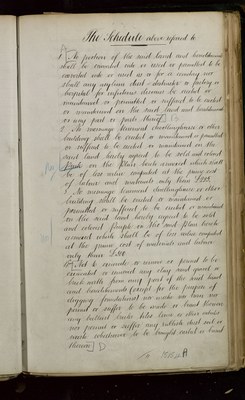 The Schedule above referred to
No portion of the said land and hereditaments
shall be converted into or used or permitted to be
converted into or used as or for a cemetery nor
shall any asylum
hospital for infectious diseases be erected or
maintained or permitted or suffered to be erected
or maintained on the said land and hereditaments
or any part or parts thereof
2. No messuage tenement dwellinghouse or other
building shall be erected or maintained or permitted
or suffered to be erected or maintained on the
said land hereby agreed to be sold and colored
on the plan hereto annexed which shall
be of less value computed at the prime cost
of labour and materials only than
3. No messuage tenement dwellinghouse or other
building shall be erected or maintained or
permitted or suffered to be erected or maintained
on the said land hereby agreed to be sold
and colored purple on the said plan hereto
annexed which shall be of less value computed
at the prime cost of materials and labour
only than
4. Not to excavate or remove or permit to be
excavated or removed any clay sand gravel or
earth from any part of the said land
and hereditaments except for the purpose of
digging foundations nor make nor burn nor
permit or suffer to be made or burnt thereon
any bricks tiles lime or other articles
nor permit or suffer any rubbish dust or
to be brought
thereon